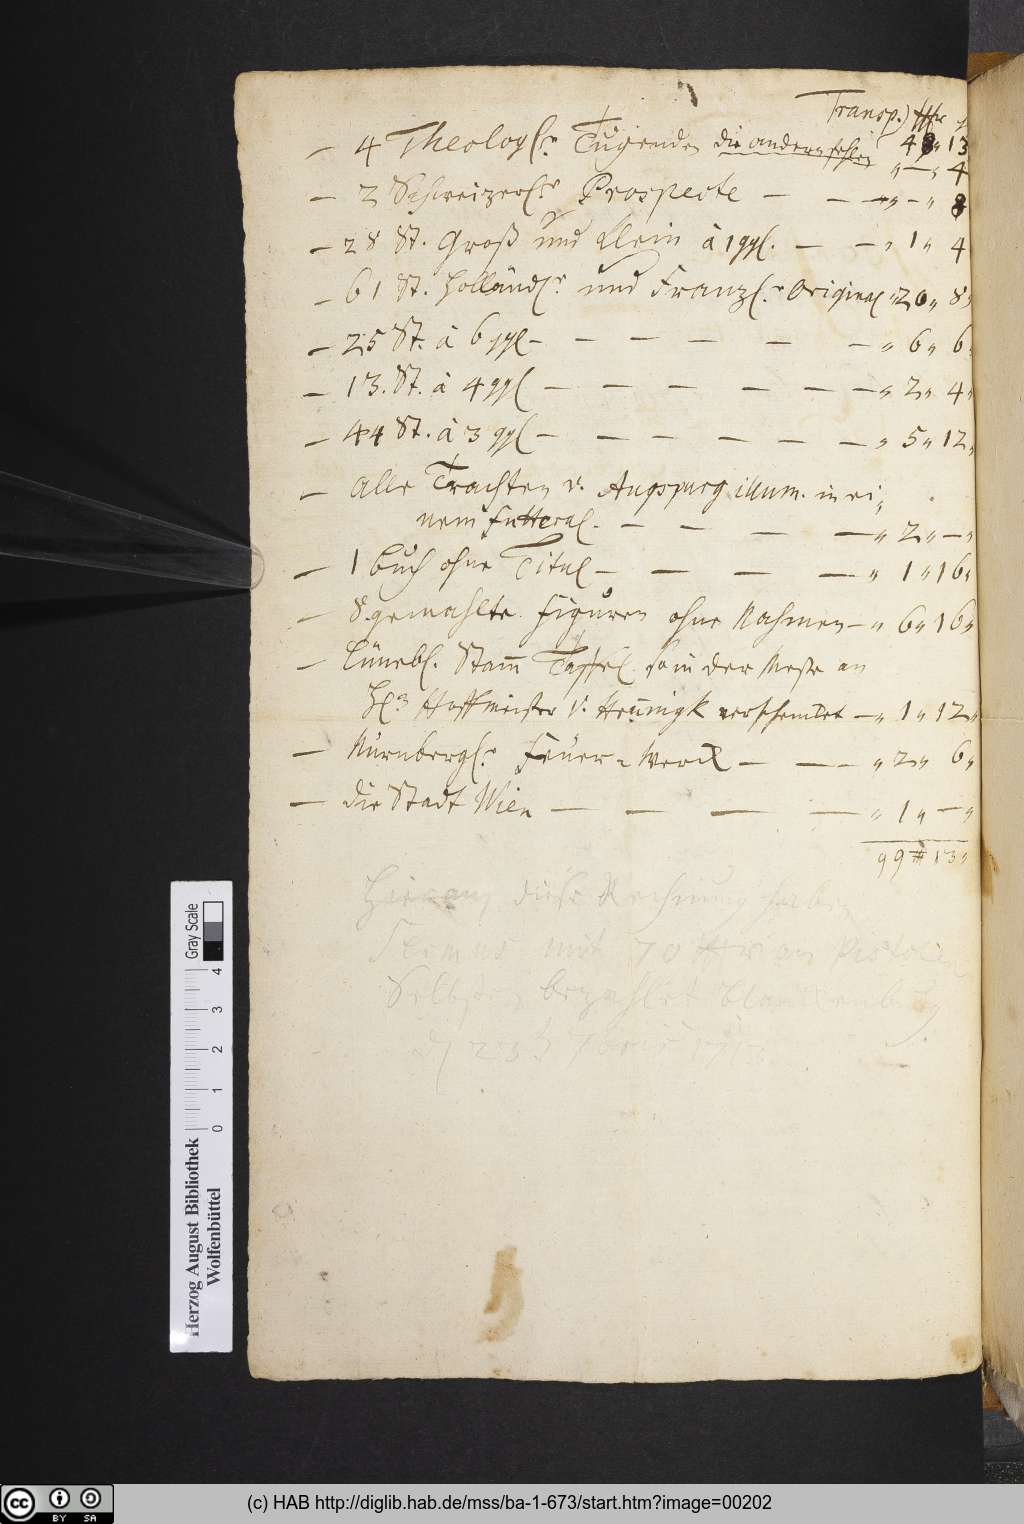 Transp.) 48 „ 13
— 4 Theologs. Tugenden die andern fehlen „ — „ 4
— 2 Schweizers. Prospecte — — — „ — „ 8
— 28 St. Groß und klein à 1 ggl. — — „ 1 „ 4
— 61 St. Holländs. und Franzs. Original „ 20 „ 8 „
— 25 St. à 6 ggl — — — — — — „ 6 „ 6 „
— 13. St. à 4 ggl — — — — — — „ 2 „ 4 „
— 44 St. à 3 ggl — — — — — — „ 5 „ 12 „
— Alle Trachten v. Augspurg illum. in ei„
nem Futteral. — — — — „ 2 „ — „
— 1 Buch ohne Titul — — — — „ 1 „ 16 „
— 8. gemahlte Figuren ohne Rahmen — „ 6 „ 16 „
— Lünebs. Stam Taffel so in der Meße an
H. Hoffmeister v. Hennigk verschencket — „ 1 „ 12 „
— Nürnbergs. Feuer = Werck — — — „ 2 „ 6 „
— die Stadt Wien — — — — „ 1 „ — „
99 13 „
Hierauf diese Rechnung haben
mit 70 an Pistolen
Selbsten bezahlet Blanckenburg
Herzog August Bibliothek
Wolfenbüttel
0 1 2 3 4
Gray Scale
cc BY SA
(c) HAB http://diglib.hab.de/mss/ba-1-673/start.htm?image=00202